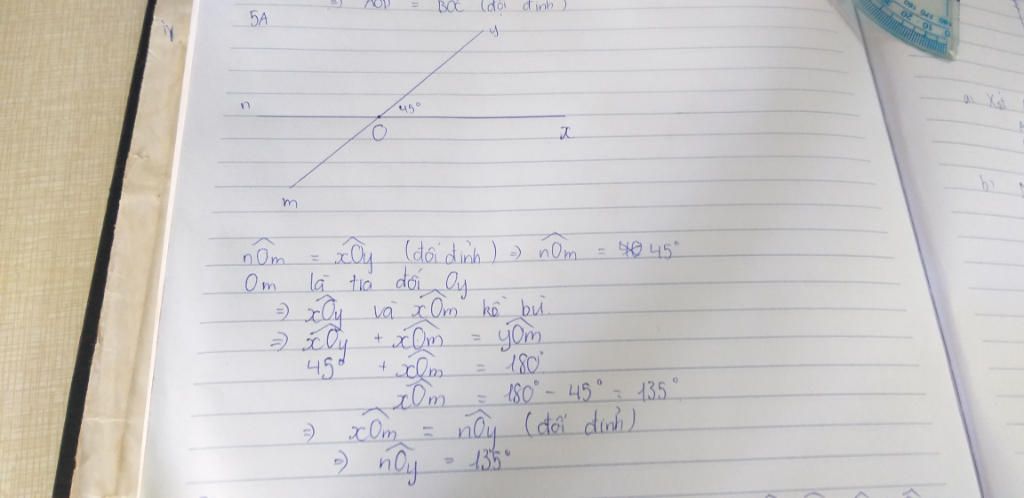 ⇒ AOD = BOC (đối đỉnh)
5A
y
n
45°
O
x
m
nOm = xOy (đối đỉnh) ⇒ nOm = 45°
Om là tia đối Oy
⇒ xOy và xOm kề bù
⇒ xOy + xOm = yOm
45° + xOm = 180°
xOm = 180° - 45° = 135°
⇒ xOm = nOy (đối đỉnh)
⇒ nOy = 135°
a)
b)